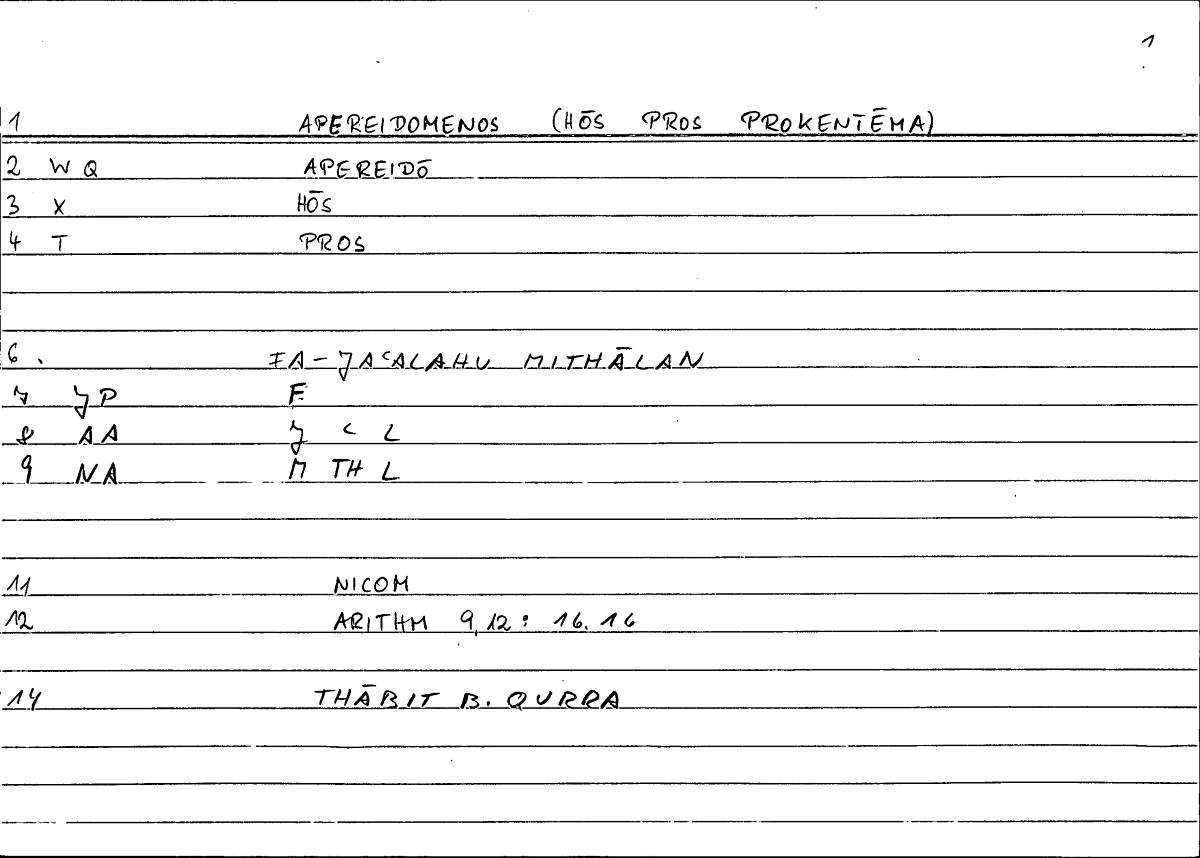 1
1 APEREIDOMENOS (HŌS PROS PROKENTĒMA)
2 W Q APEREIDŌ
3 X HŌS
4 T PROS
6 . FA-JAʿALAHU MITHĀLAN
7 JP F
8 AA J ʿ L
9 NA M TH L
11 NICOM
12 ARITHM 9,12: 16.16
14 THĀBIT B. QURRA